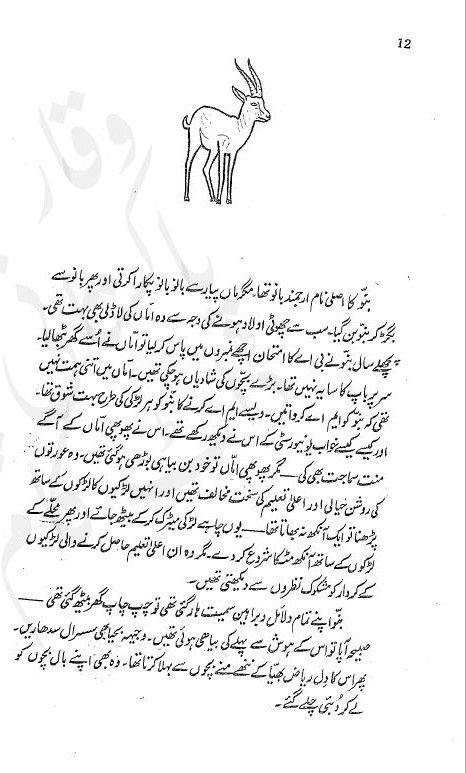 12
بنّو کا اصلی نام ارجمند بانو تھا۔ مگر ماں پیار سے بانو بانو پکارا کرتی اور پھر بانو سے
بگڑ کر بنّو بن گیا۔ سب سے چھوٹی اولاد ہونے کی وجہ سے وہ اماں کی لاڈلی بھی بہت تھی۔
پچھلے سال بنّو نے بی اے کا امتحان اچھے نمبروں میں پاس کر لیا تو اماں نے اُسے گھر بٹھا لیا۔
سر پر باپ کا سایہ نہیں تھا۔ بڑے بچّوں کی شادیاں ہو چکی تھیں۔ اماں میں اتنی ہمت نہیں
تھی کہ بنّو کو ایم اے کرواتیں۔ ویسے ایم اے کرنے کا بنّو کو ہر لڑکی کی طرح بہت شوق تھا۔
اور کیسے کیسے خواب یونیورسٹی کے اس نے دیکھ رکھے تھے۔ اس نے پھوپھی اماں کے آگے
منت سماجت بھی کی — مگر پھوپھی اماں تو خود بن بیاہی بوڑھی ہو گئی تھیں۔ وہ عورتوں
کی روشن خیالی اور اعلیٰ تعلیم کی سخت مخالف تھیں اور انہیں لڑکیوں کا لڑکوں کے ساتھ
پڑھنا تو ایک آنکھ نہ بھاتا تھا — یوں چاہے لڑکی میٹرک کر کے بیٹھ جائے اور پھر محلّے کے
لڑکوں کے ساتھ آنکھ مٹکا شروع کر دے۔ مگر وہ ان اعلیٰ تعلیم حاصل کرنے والی لڑکیوں
کے کردار کو مشکوک نظروں سے دیکھتی تھیں۔
بنّو اپنے تمام دلائل و براہین سمیت ہار گئی تھی تو چپ چاپ گھر بیٹھ گئی تھی —
صبیحہ آپا تو اس کے ہوش سے پہلے کی بیاہی ہوئی تھیں۔ وجیہہ بجیا بھی سسرال سدھاریں۔
پھر اس کا دل ریاض بھیّا کے ننھے منے بچوں سے بہلا کرتا تھا۔ وہ بھی اپنے بال بچوں کو
لے کر دُبئی چلے گئے۔